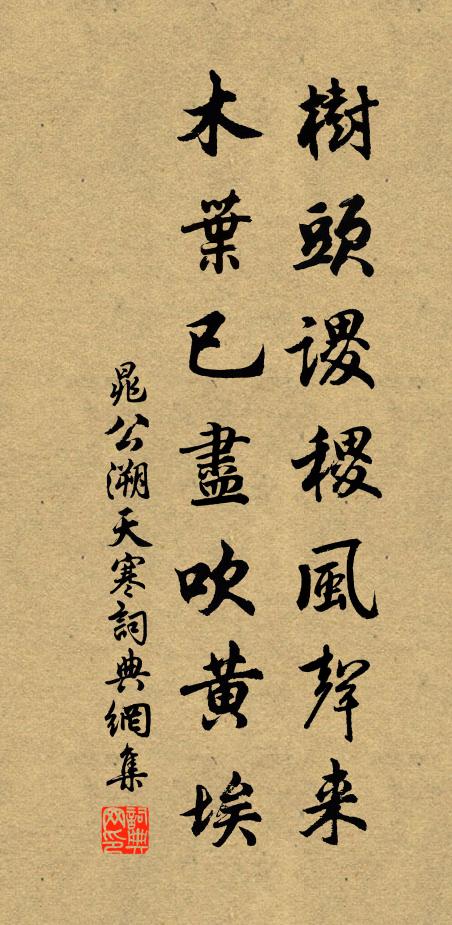 樹頭謖稷風聲来
木葉已盡吹黃埃
晁公溯天寒詞典網集
詞典網印